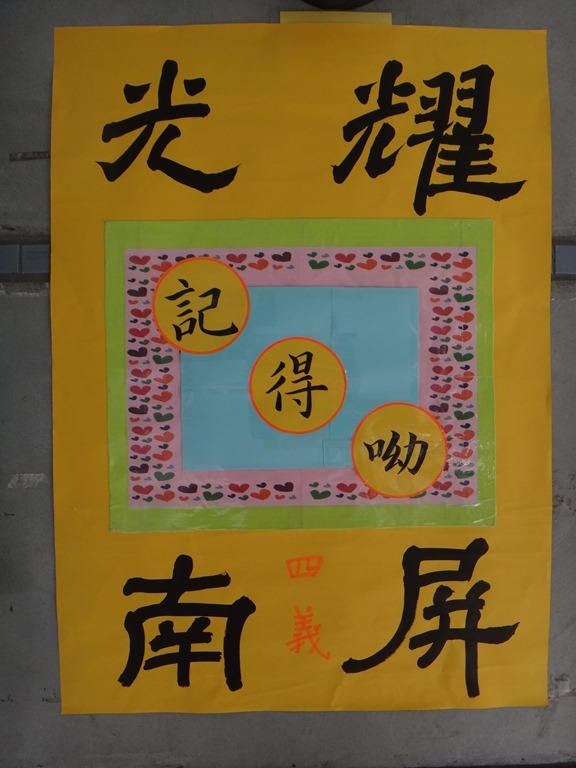 光耀
記得呦
南屏
四義